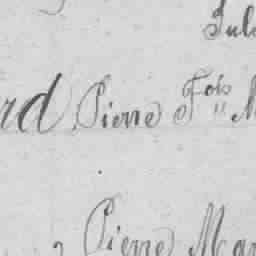 Jul
rd, Pierre Fois M
Pierre Mar